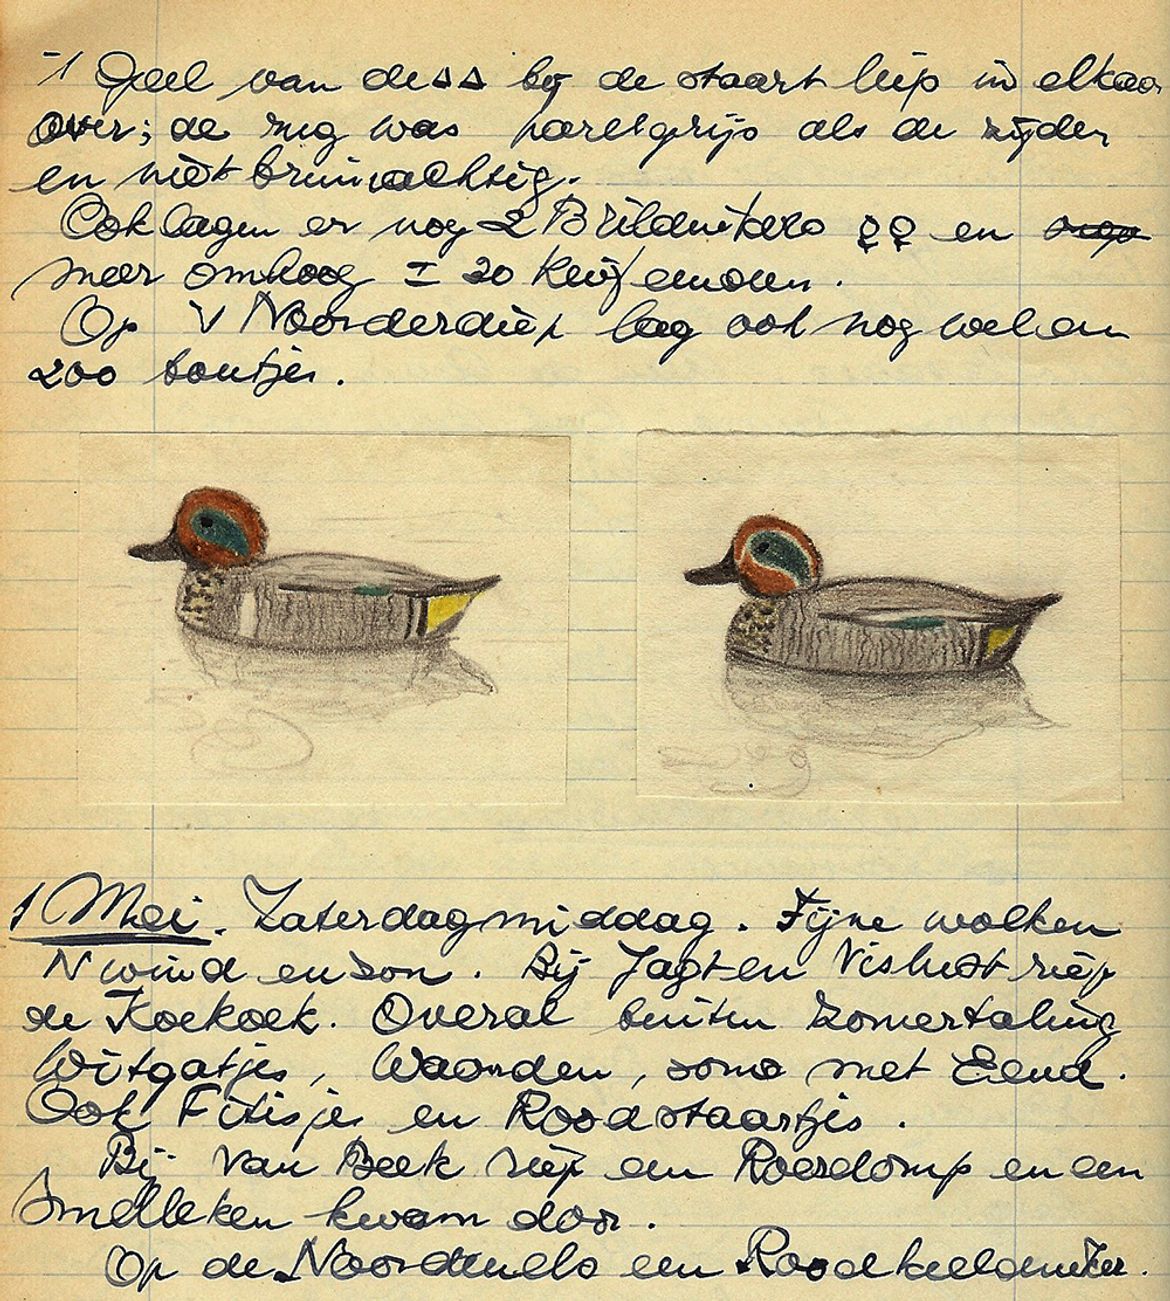 -1 Geel van de ▵▵ bij de staart liep in elkaar
over; de rug was parelgrijs als de zijden
en niet bruinachtig.
Ook lagen er nog 2 Brilduikers ♀♀ en
meer omhoog ± 20 kuifeenden.
Op 't Noorderdiep lag ook nog wel een
200 bontjes.
1 Mei. Zaterdagmiddag. Fijne wolken
N wind en zon. Bij Jagt en Vislust riep
de Koekoek. Overal buiten Zomertaling
Witgatjes, Woerden, soms met Eend.
Ook Fitisjes en Roodstaartjes.
Bij Van Beek riep een Roerdomp en een
Smelleken kwam door.
Op de Noordends een Roodkeelduiker.